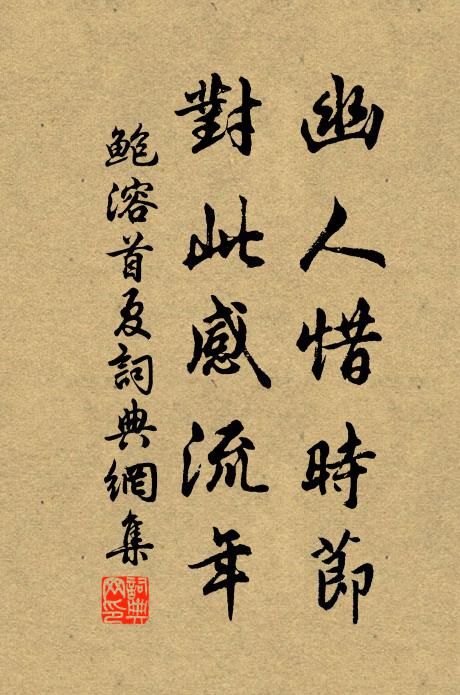 幽人惜時節
對此感流年
鮑溶首夏詞典網集
詞典網印